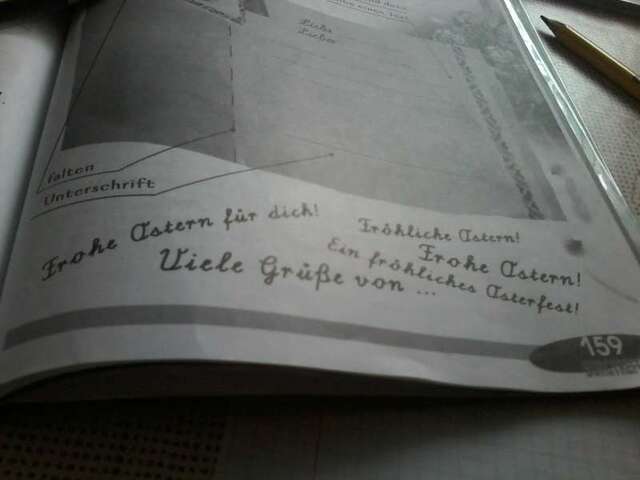 Liebe
Lieber
falten
Unterschrift
Frohe Ostern für dich!
Fröhliche Ostern!
Frohe Ostern!
Ein fröhliches Osterfest!
Viele Grüße von ...
159